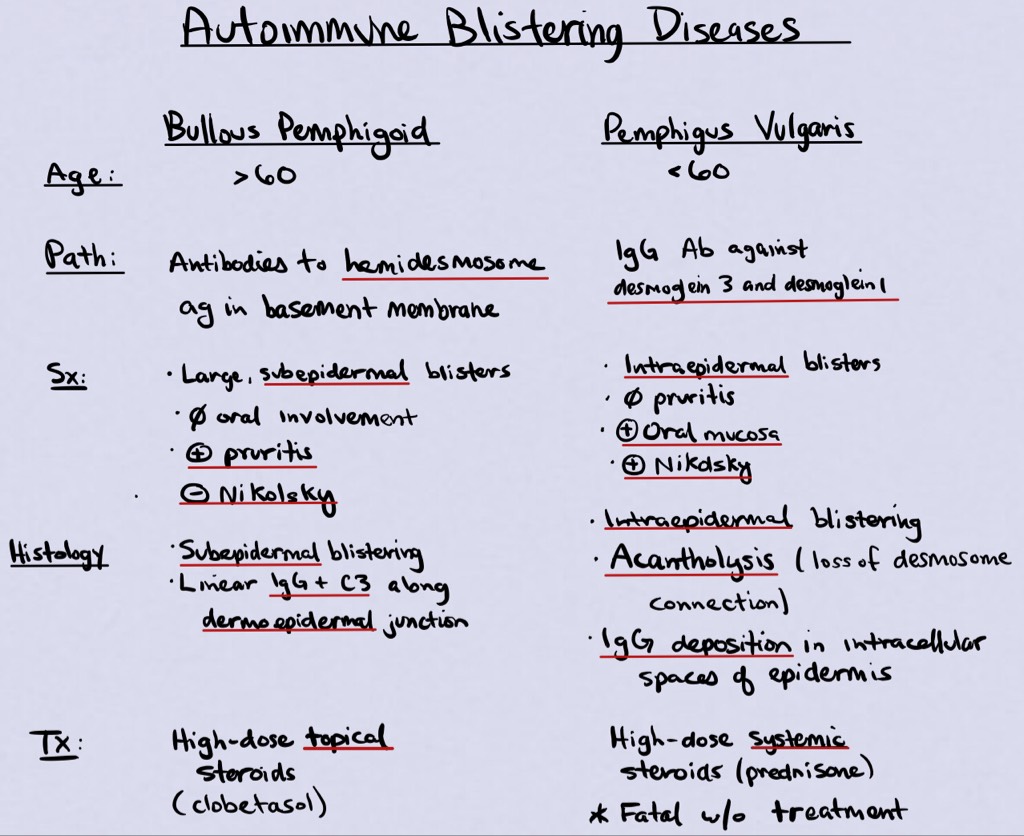 Autoimmune Blistering Diseases
Bullous Pemphigoid
Pemphigus Vulgaris
Age:
>60
<60
Path:
Antibodies to hemidesmosome
ag in basement membrane
IgG Ab against
desmogein 3 and desmoglein 1
Sx:
· Large, subepidermal blisters
· Ø oral involvement
· ⊕ pruritis
⊖ Nikolsky
· Intraepidermal blisters
· Ø pruritis
· ⊕ Oral mucosa
· ⊕ Nikolsky
Histology
· Subepidermal blistering
· Linear IgG + C3 along
dermoepidermal junction
· Intraepidermal blistering
· Acantholysis (loss of desmosome
connection)
· IgG deposition in intracellular
spaces of epidermis
Tx:
High-dose topical
steroids
(clobetasol)
High-dose systemic
steroids (prednisone)
* Fatal w/o treatment